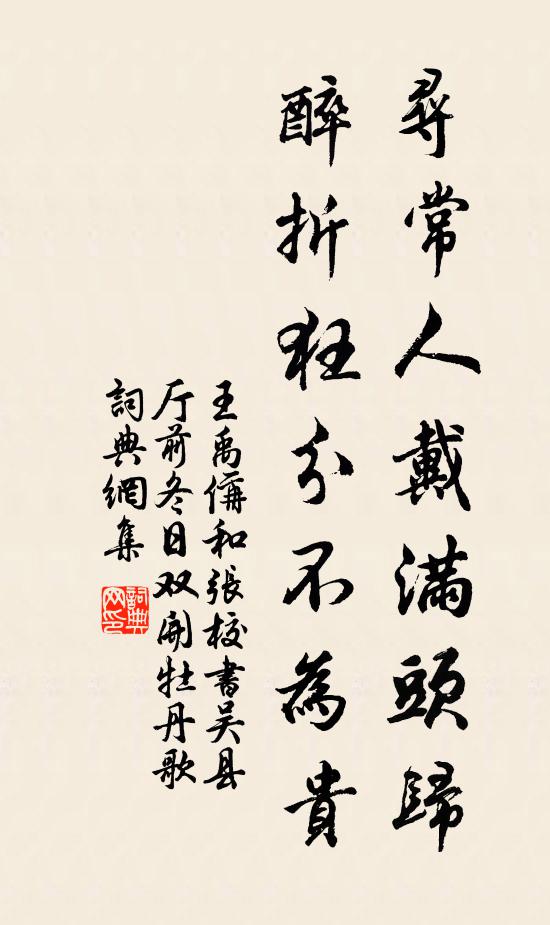 尋常人戴滿頭歸
醉折狂分不為貴
王禹偁和張校書吴县
厅前冬日双開牡丹歌
詞典網集
詞典
网印